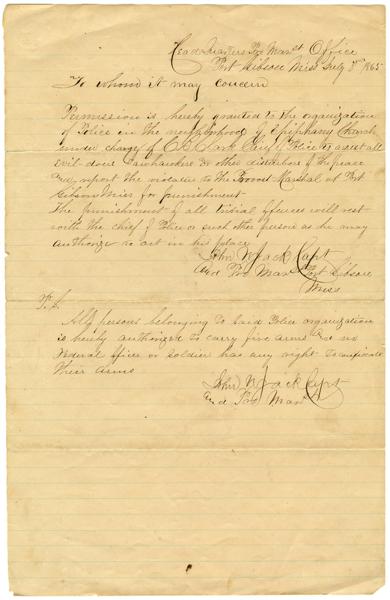 Head Quarters Pro Marst Office
Port Gibson Miss July 3rd 1865
To whom it may concern
Permission is hereby granted to the organization
of Police in the neighborhood of Epiphany Church
under charge of Clark Chief of Police to arrest all
evil doers & other disturbers of the peace
and report the violators to the Provost Marshal at Port
Gibson Miss for punishment
The punishment of all trivial offences will rest
with the chief of Police or such other persons as he may
authorize to act in his place
John W Jack Capt
and Pro Mars Port Gibson
Miss
P.S.
All persons belonging to Said Police organization
is hereby authorized to carry fire arms & no
Federal officer or Soldier has any right to confiscate
their arms
John W Jack Capt
and Pro Mars